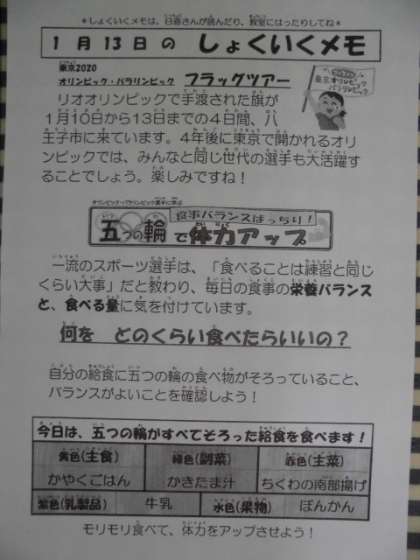 ＊しょくいくメモは、日直さんが読んだり、教室にはったりしてね＊
１月１３日の しょくいくメモ
東京2020
オリンピック・パラリンピック フラッグツアー
リオオリンピックで手渡された旗が
１月１０日から１３日までの４日間、八
王子市に来ています。４年後に東京で開かれるオリ
ンピックでは、みんなと同じ世代の選手も大活躍す
ることでしょう。楽しみですね！
オリンピック・パラリンピック選手に学ぶ
食事バランスばっちり！
五つの輪で体力アップ
一流のスポーツ選手は、「食べることは練習と同じ
くらい大事」だと教わり、毎日の食事の栄養バランス
と、食べる量に気を付けています。
何を どのくらい食べたらいいの？
自分の給食に五つの輪の食べ物がそろっていること、
バランスがよいことを確認しよう！
今日は、五つの輪がすべてそろった給食を食べます！
黄色(主食) 緑色(副菜) 赤色(主菜)
かやくごはん かきたま汁 ちくわの南部揚げ
紫色(乳製品) 牛乳 水色(果物) ぽんかん
モリモリ食べて、体力をアップさせよう！